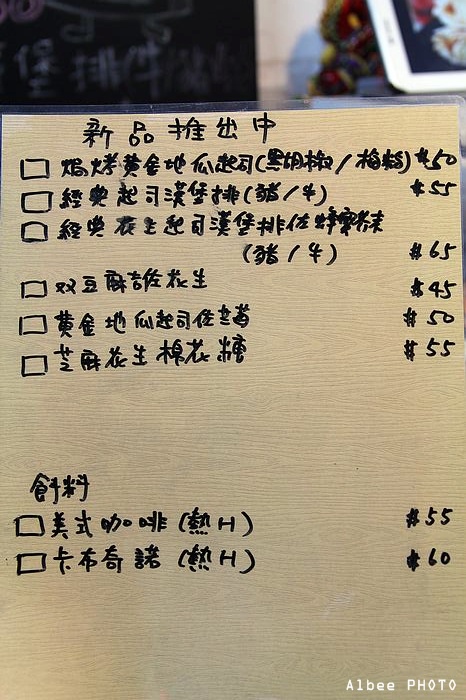 堡 排
新品推出中
□焗烤黃金地瓜起司(黑胡椒/梅粉) $50
□經典起司漢堡排(豬/牛) $55
□經典花生起司漢堡排佐蜂蜜抹
(豬/牛) $65
□双豆麻諸花生 $45
□黃金地瓜起司佐芝 $50
□芝麻花生棉花糖 $55
飲料
□美式咖啡(熱H) $55
□卡布奇諾(熱H) $60
Albee PHOTO